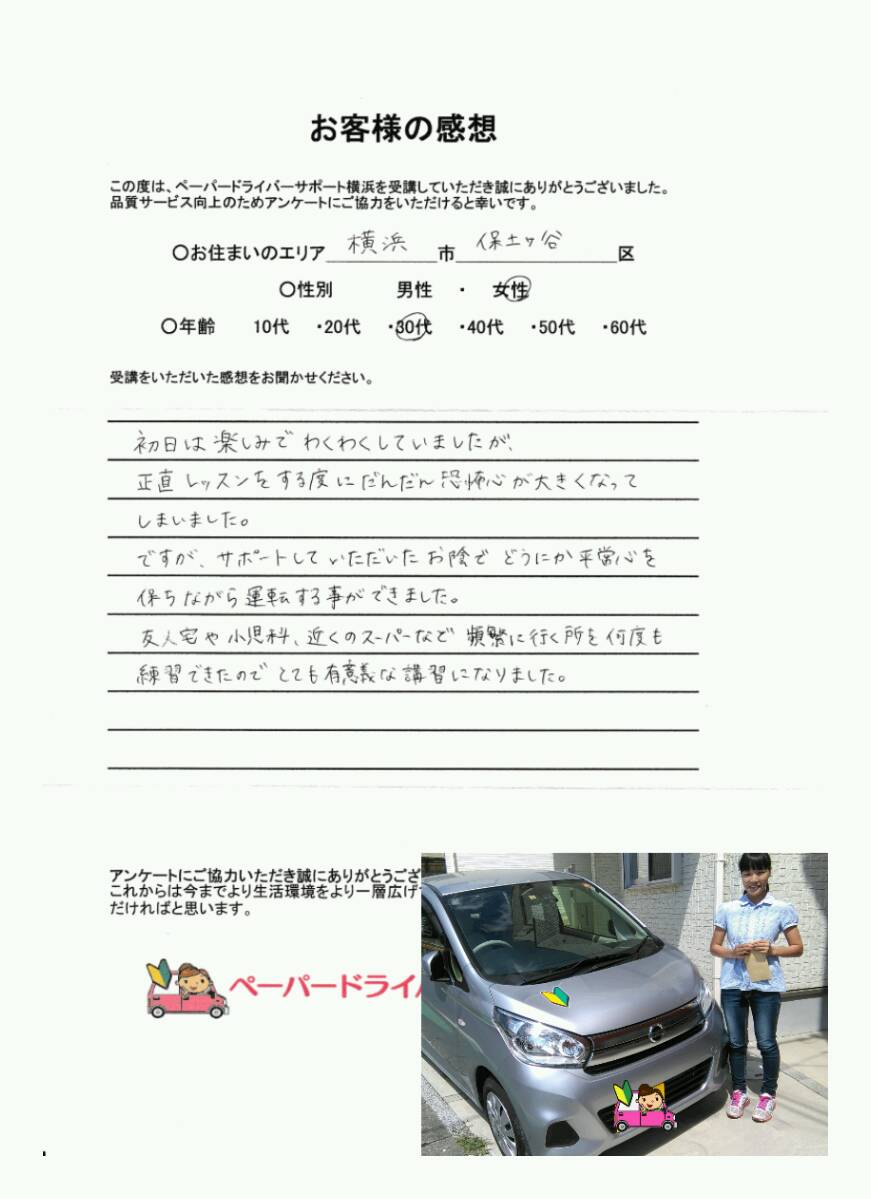 お客様の感想
この度は、ペーパードライバーサポート横浜を受講していただき誠にありがとうございました。
品質サービス向上のためアンケートにご協力をいただけると幸いです。
〇お住まいのエリア 横浜 市 保土ヶ谷 区
〇性別 男性 ・ 女性
〇年齢 10代 ・20代 ・30代 ・40代 ・50代 ・60代
受講をいただいた感想をお聞かせください。
初日は楽しみでわくわくしていましたが、
正直レッスンをする度にだんだん恐怖心が大きくなって
しまいました。
ですが、サポートしていただいたお陰でどうにか平常心を
保ちながら運転する事ができました。
友人宅や小児科、近くのスーパーなど頻繁に行く所を何度も
練習できたのでとても有意義な講習になりました。
アンケートにご協力いただき誠にありがとうござ
これからは今までより生活環境をより一層広げ
だければと思います。
ペーパードライ